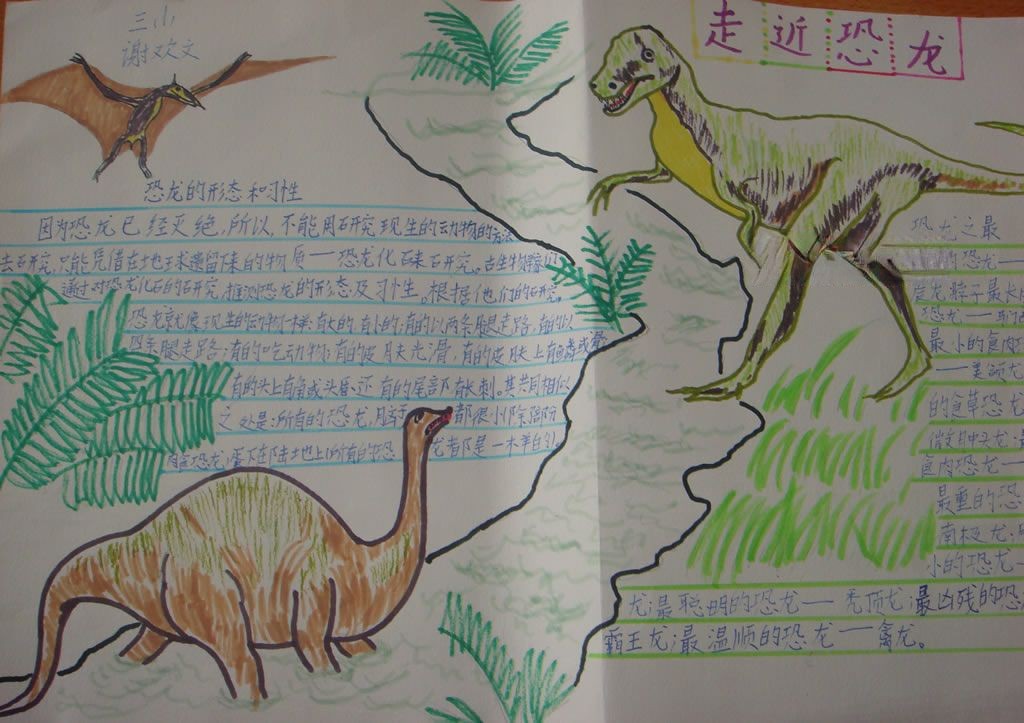 三小
谢欢文
走近恐龙
恐龙的形态和习性
因为恐龙已经灭绝,所以,不能用研究现生的动物的方法
去研究,只能凭借在地球遗留下来的物质——恐龙化石来研究。古生物
通过对恐龙化石的研究,推测恐龙的形态及习性。根据他们的研究,
恐龙就像现生的动物一样:有大的,有小的;有的以两条腿走路,有的以
四条腿走路;有的吃动物;有的皮肤光滑,有的皮肤上有鳞或
有的头上有角或头唇,还有的尾部有长刺。其共同相似
之处是:所有的恐龙,都很小除
肉食恐龙,蛋下在陆地上,所有的恐龙都是一样的
恐龙之最
的恐龙——
龙,脖子最长
恐龙——
最小的食肉
——美颌龙
的食草恐龙
龙,最
食肉恐龙——
最重的恐
南极龙,
小的恐龙—
龙最聪明的恐龙——秃顶龙最凶残的恐
霸王龙最温顺的恐龙——禽龙。